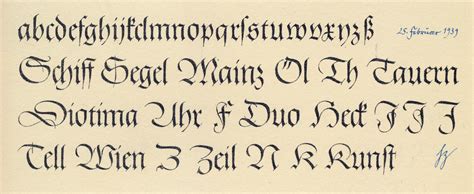 abcdefghijklmnopqrſstuvwxyzß 25. Februar 1939
Schiff Segel Mainz Öl Th Tauern
Diotima Uhr F Duo Heck J J J
Tell Wien Z Zeil N K Kunſt